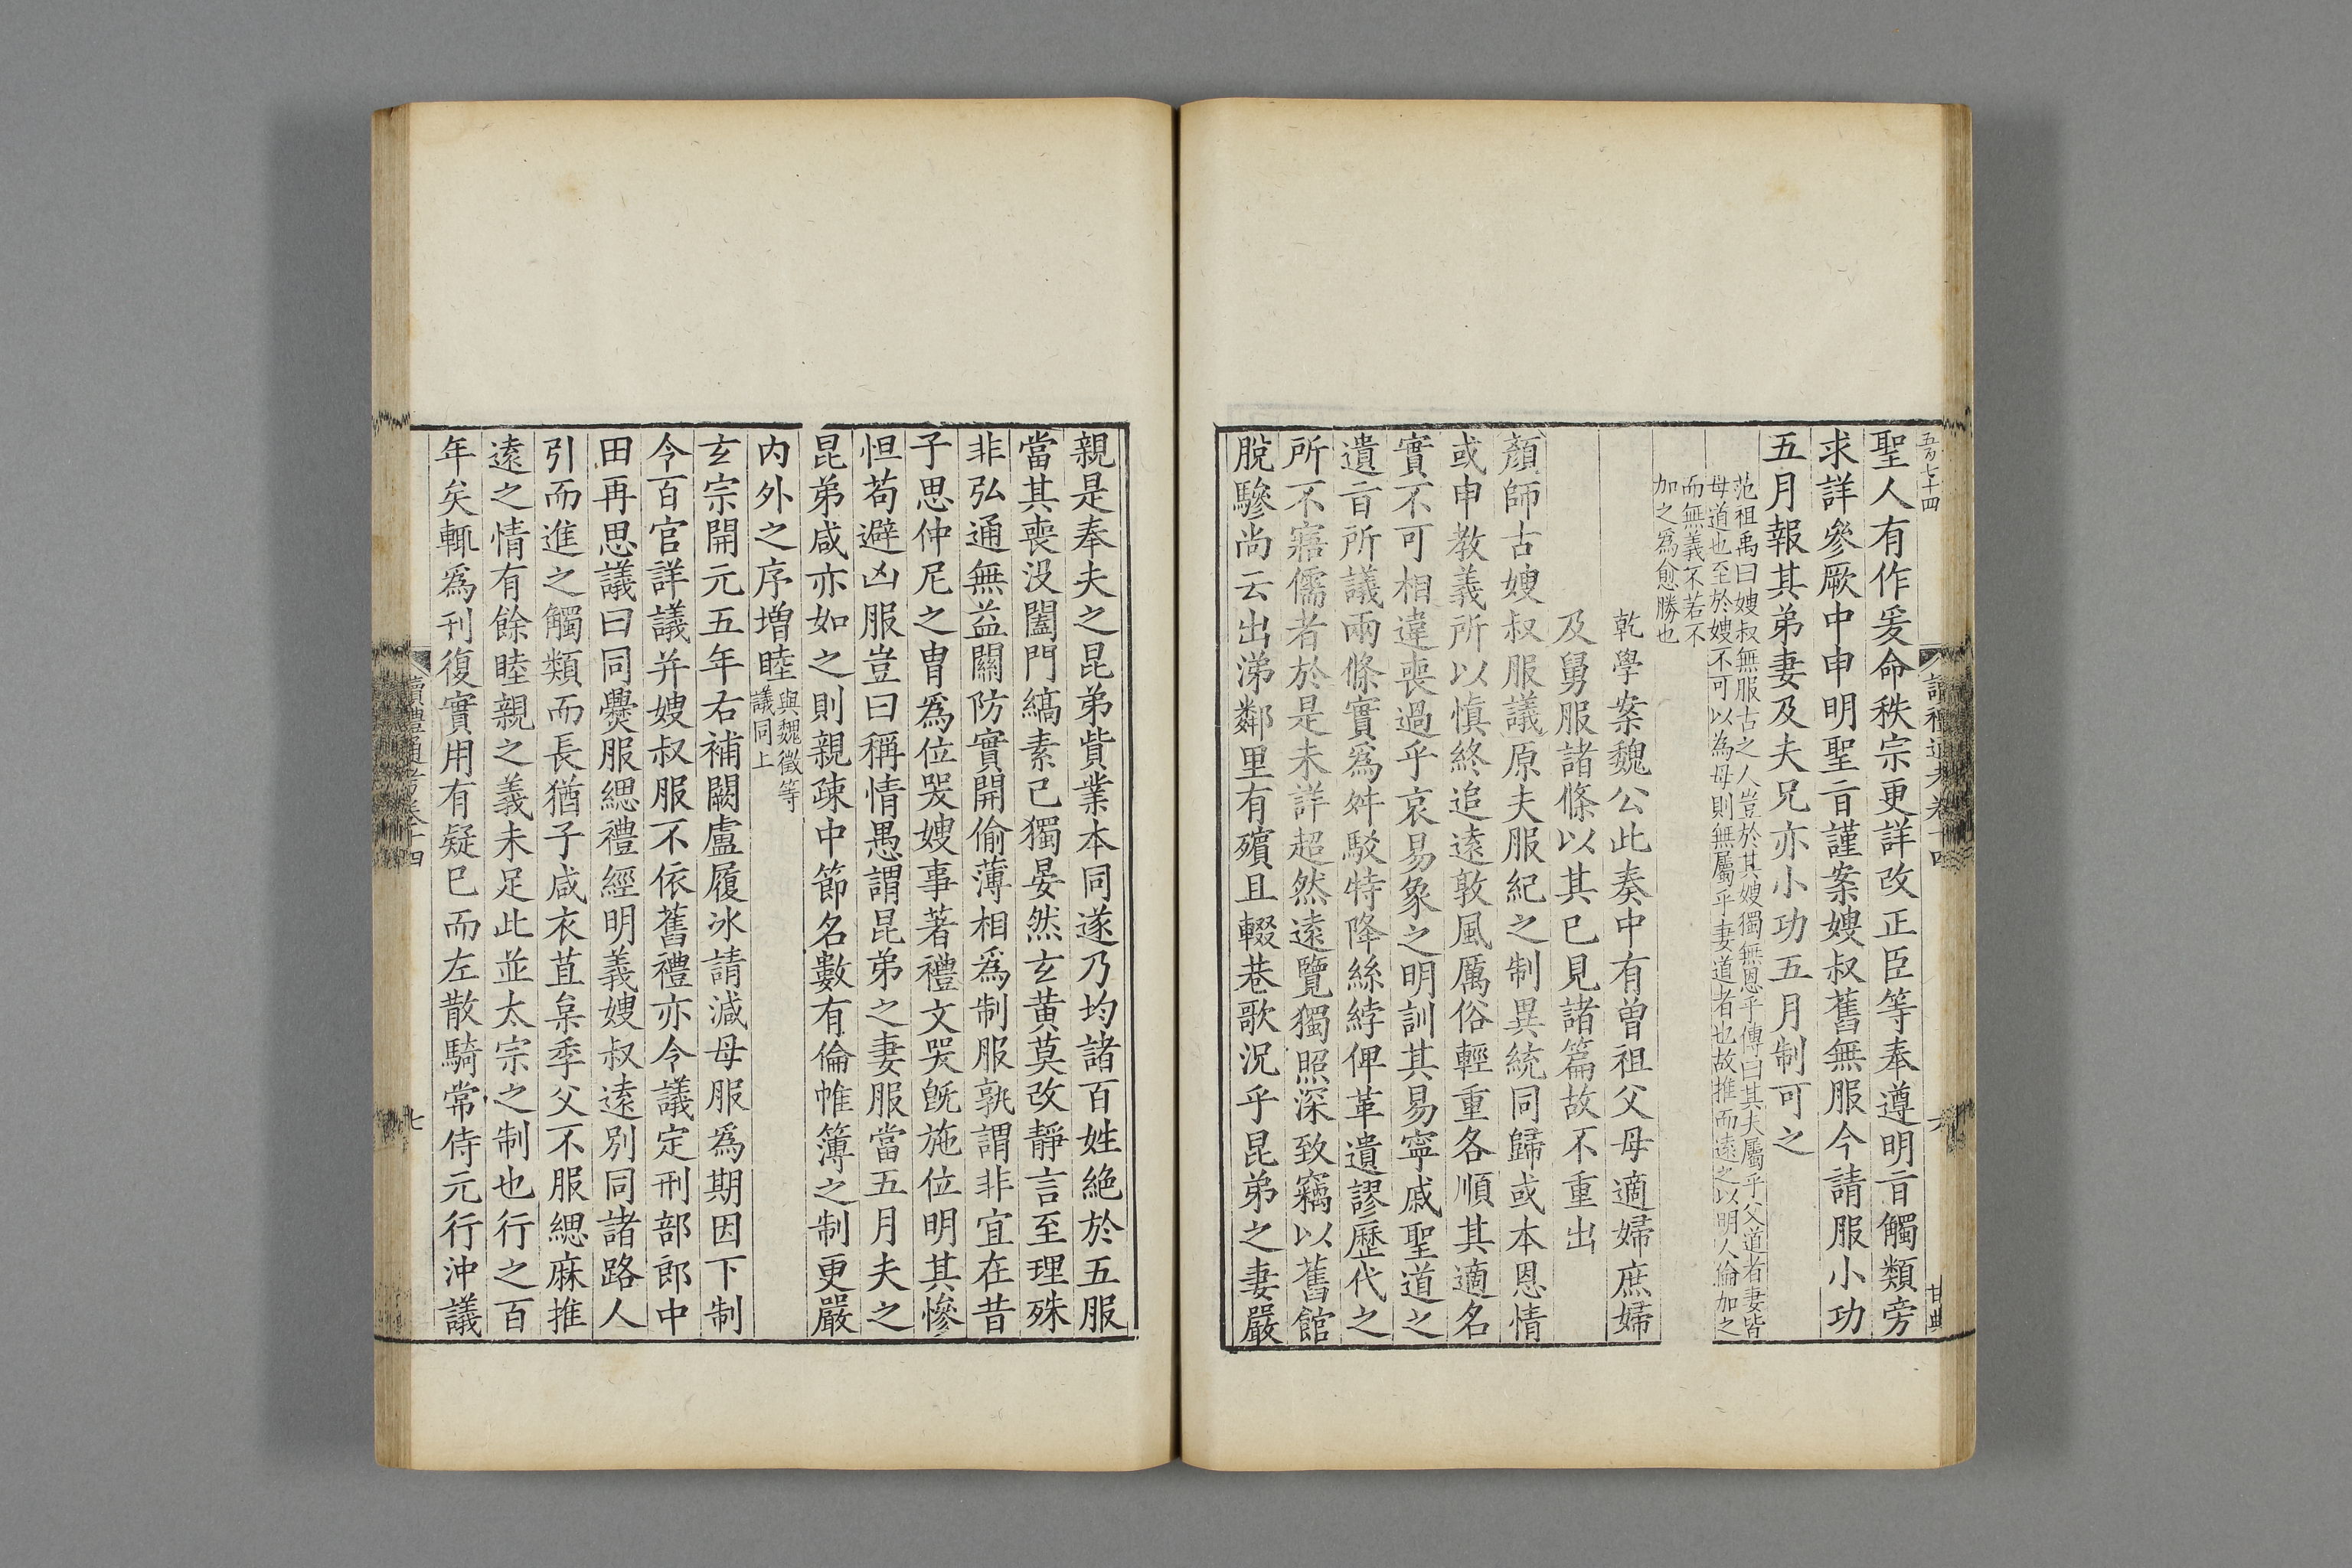 五百七十四
讀禮通考卷十四
六
甘典
聖人有作爰命秩宗更詳改正臣等奉遵明㫖觸類旁
求詳參厥中申明聖㫖謹案嫂叔舊無服今請服小功
五月報其弟妻及夫兄亦小功五月制可之
范祖禹曰嫂叔無服古之人豈於其嫂獨無恩乎傳曰其夫屬乎父道者妻皆
母道也至於嫂不可以為母則無屬乎妻道者也故推而遠之以明人倫加之
而無義不若不
加之爲愈勝也
乾學案魏公此奏中有曽祖父母適婦庶婦
及舅服諸條以其已見諸篇故不重出
顏師古嫂叔服議原夫服紀之制異統同歸或本恩情
或申教義所以慎終追遠敦風厲俗輕重各順其適名
實不可相違喪過乎哀易象之明訓其易寧戚聖道之
遺㫖所議兩條實爲舛駁特降絲綍俾革遺謬歷代之
所不寤儒者於是未詳超然遠覽獨照深致竊以舊館
脫驂尚云出涕鄰里有殯且輟巷歌況乎昆弟之妻嚴
親是奉夫之昆弟貲業本同遂乃均諸百姓絶於五服
當其喪没闔門縞素已獨晏然玄黄莫改靜言至理殊
非弘通無益關防實開偷薄相爲制服孰謂非宜在昔
子思仲尼之胄爲位哭嫂事著禮文哭旣施位明其慘
怛苟避凶服豈曰稱情愚謂昆弟之妻服當五月夫之
昆弟咸亦如之則親疎中節名數有倫帷簿之制更嚴
内外之序增睦
與魏徵等
議同上
玄宗開元五年右補闕盧履冰請減母服爲期因下制
今百官詳議并嫂叔服不依舊禮亦今議定刑部郎中
田再思議曰同爨服緦禮經明義嫂叔遠別同諸路人
引而進之觸類而長猶子咸衣苴枲季父不服緦麻推
遠之情有餘睦親之義未足此並太宗之制也行之百
年矣輒爲刊復實用有疑巳而左散騎常侍元行沖議
讀禮通考卷十四
七